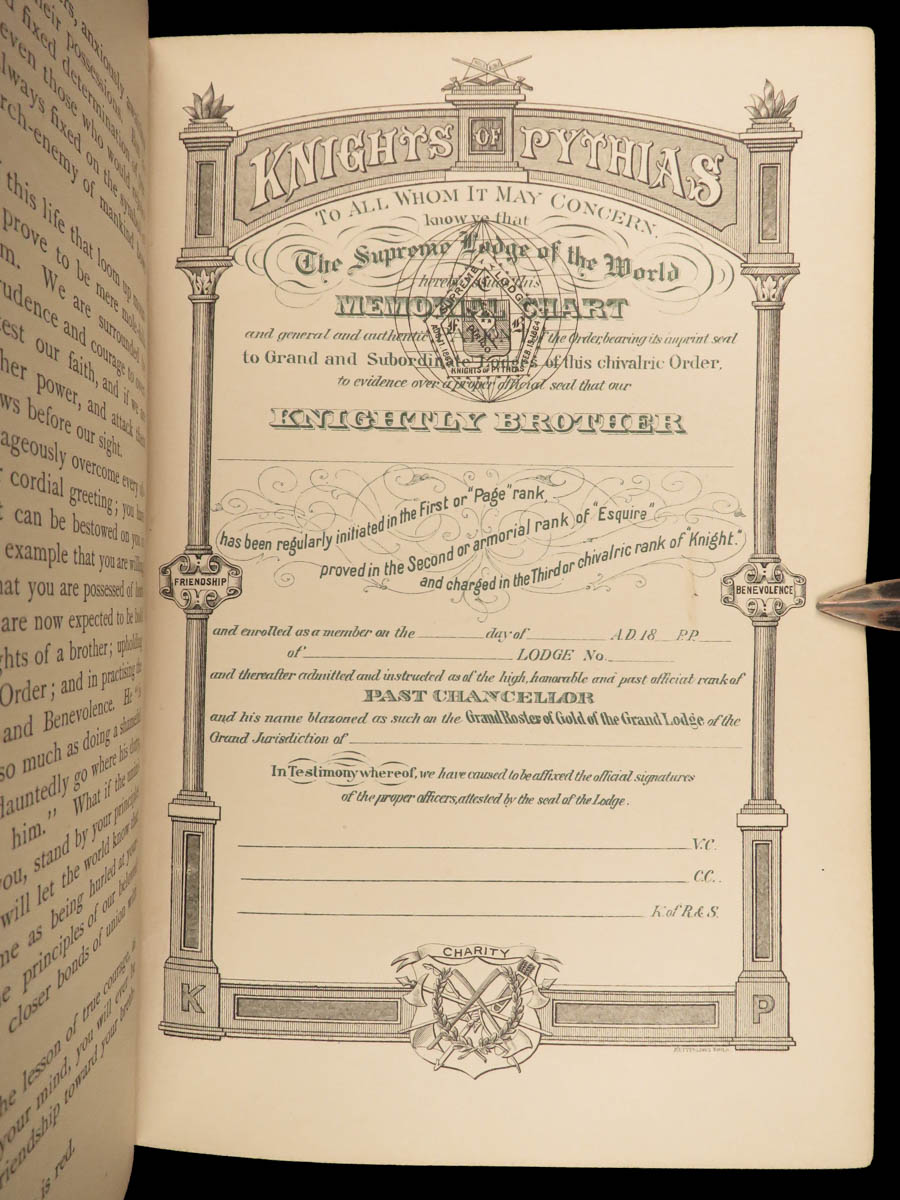 anxiously
their possessions.
fixed determination of
even those who would
always fixed on the
arch-enemy of mankind
this life that loom up
prove to be mere
We are surrounded
prudence and courage to
test our faith, and if we
her power, and attack
before our sight.
ageously overcome every
cordial greeting; you
can be bestowed on you
example that you are
that you are possessed of
are now expected to be
of a brother;
Order; and in practising the
and Benevolence. He "is
so much as doing a
dauntedly go where his duty
him." What if the
you, stand by your principles
will let the world know that
as being hurled at your
principles of our beloved
closer bonds of union will
the lesson of true courage,
your mind, you will ever
friendship toward your
is red.
KNIGHTS OF PYTHIAS
TO ALL WHOM IT MAY CONCERN,
know ye that
The Supreme Lodge of the World
this
MEMORIAL CHART
and general and authentic of the Order, bearing its imprint seal
to Grand and Subordinate Lodges of this chivalric Order,
to evidence over a proper official seal that our
KNIGHTLY BROTHER
SUPREME LODGE
KNIGHTS OF PYTHIAS
FEB. 19. 1864
has been regularly initiated in the First or "Page" rank,
proved in the Second or armorial rank of "Esquire"
and charged in the Third or chivalric rank of "Knight."
FRIENDSHIP
BENEVOLENCE
and enrolled as a member on the day of A.D. 18 P.P.
of LODGE No.
and thereafter admitted and instructed as of the high, honorable and past official rank of
PAST CHANCELLOR
and his name blazoned as such on the Grand Roster of Gold of the Grand Lodge of the
Grand Jurisdiction of
In Testimony whereof, we have caused to be affixed the official signatures
of the proper officers, attested by the seal of the Lodge.
V.C.
C.C.
K of R & S.
CHARITY
K
P